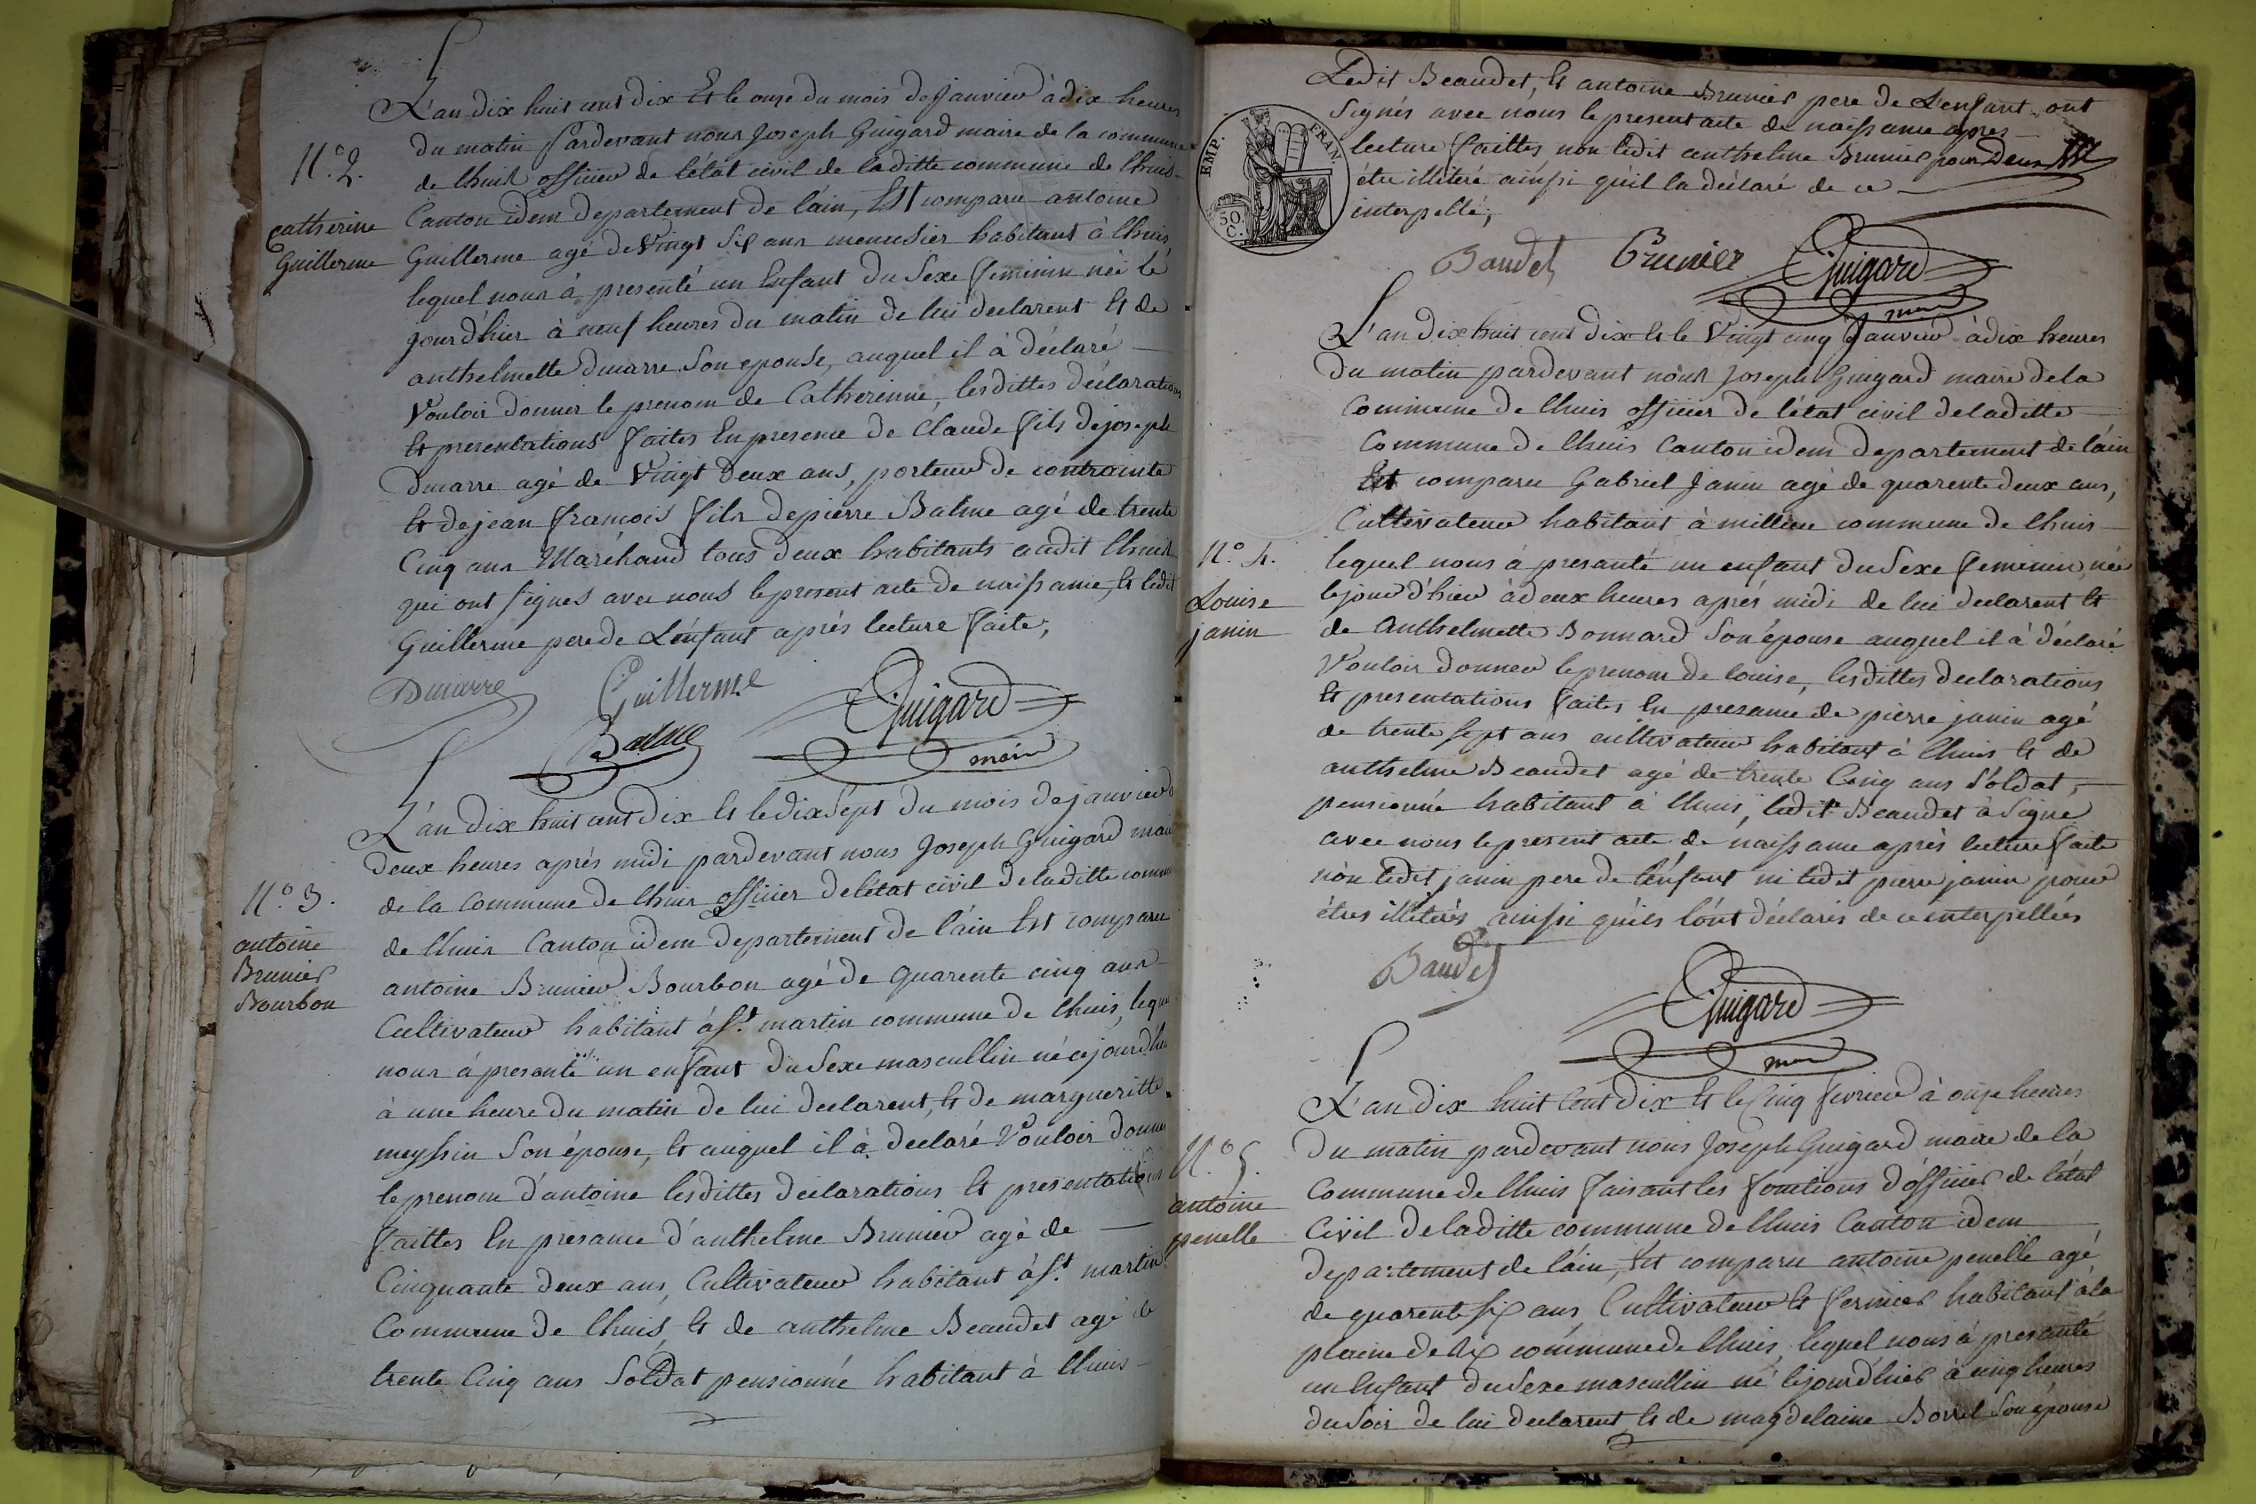 L'an dix huit cent dix Et le onze du mois de Janvier à dix heures
du matin pardevant nous Joseph Guigard maire de la commune
N.º 2.
de lhuis officier de l'état civil de laditte commune de lhuis
Canton idem departement de lain, Est comparu antoine
Catherine
Guillerme
Guillerme agé de Vingt Six ans menusier habitant à lhuis
lequel nous à presenté un Enfant du Sexe feminin née le
jourd'hier à neuf heures du matin de lui declarent Et de
anthelmette Dmarre Son epouse, auquel il à déclaré
Vouloir donner le prenom de Catherinne, lesdittes déclarations
Et presentations faites En presence de Claude fils de joseph
Dmarre agé de Vingt Deux ans, porteur de contrainte
Et de jean francois fils de pierre Balme agé de trente
Cinq ans Maréchand tous deux habitants audit lhuis
qui ont signes avec nous le present acte de naissance, Et ledit
Guillerme pere de L'enfant après lecture faite,
Dmarre Guillerme Guigard
Balme maire
L'an dix huit cent dix Et le dix Sept du mois de janvier à
deux heures après midi pardevant nous Joseph Guigard maire
N.º 3.
de la Commune de lhuis officier de l'état civil de laditte commune
antoine
Brunier
Bourbon
de lhuis Canton idem departement de l'ain Est comparu
antoine Brunier Bourbon agé de quarente cinq ans
Cultivateur habitant à St. martin commune de lhuis, lequel
nous à presenté un enfant du Sexe mascullin né cejourd'hui
à une heure du matin de lui declarent, Et de margueritte
meyssin Son épouse, Et auquel il à declaré Vouloir donner
le prenom d'antoine lesdittes déclarations Et presentations
faittes En presance d'anthelme Brunier agé de
Cinquante deux ans, Cultivateur habitant à St. martin
Commune de lhuis, Et de anthelme Beaudet agé de
trente Cinq ans Soldat pensionné habitant à lhuis
Ledit Beaudet, Et antoine Brunier pere de L'enfant ont
Signés avec nous le present acte de naissance apres
lecture faittes non ledit anthelme Brunier pour
être illiteré ainsi qu'il la déclaré de ce
interpellé,
EMP. FRAN.
50.
C.
Baudet Brunier Guigard
L'an dix huit cent dix Et le Vingt cinq Janvier à dix heures
du matin pardevant nous Joseph Guigard maire de la
Commune de lhuis officier de l'état civil de laditte
Commune de lhuis Canton idem departement de l'ain
Est comparu Gabriel Janin agé de quarente deux ans,
Cultivateur habitant à millieu commune de lhuis
N.º 4.
Louise
janin
lequel nous à presanté un enfant du Sexe feminin, née
le jour d'hier à deux heures après midi de lui declarent Et
de Anthelmette Bonnard Son épouse auquel il à déclaré
Vouloir donner le prenom de louise, lesdittes declarations
Et presentations faites En presance de pierre janin agé
de trente sept ans cultivateur habitant à lhuis Et de
anthelme Beaudet agé de trente Cinq ans Soldat,
pensionné habitant à lhuis, ledit Beaudet à Signe
avec nous le present acte de naissance après lecture faite
nòn ledit janin pere de l'enfant ni ledit pierre janin pour
étres illiterés ainssi qu'ils l'ont déclarés de ce interpellés
Baudet
Guigard
L'an dix huit Cent dix Et le Cinq fevrier à onze heures
du matin pardevant nous Joseph Guigard maire de la
N.º 5.
antoine
penelle
Commune de lhuis faisant les fonctions d'officier de l'état
Civil de laditte commune de lhuis Canton idem
departement de l'ain, Est comparu antoine penelle agé
de quarente six ans, Cultivateur Et fermier habitant à la
plaine de Rix commune de lhuis, lequel nous à presanté
un Enfant du Sexe mascullin né le jourd'hier à cinq heures
du Soir de lui declarent Et de magdelaine Borrel Son épouse